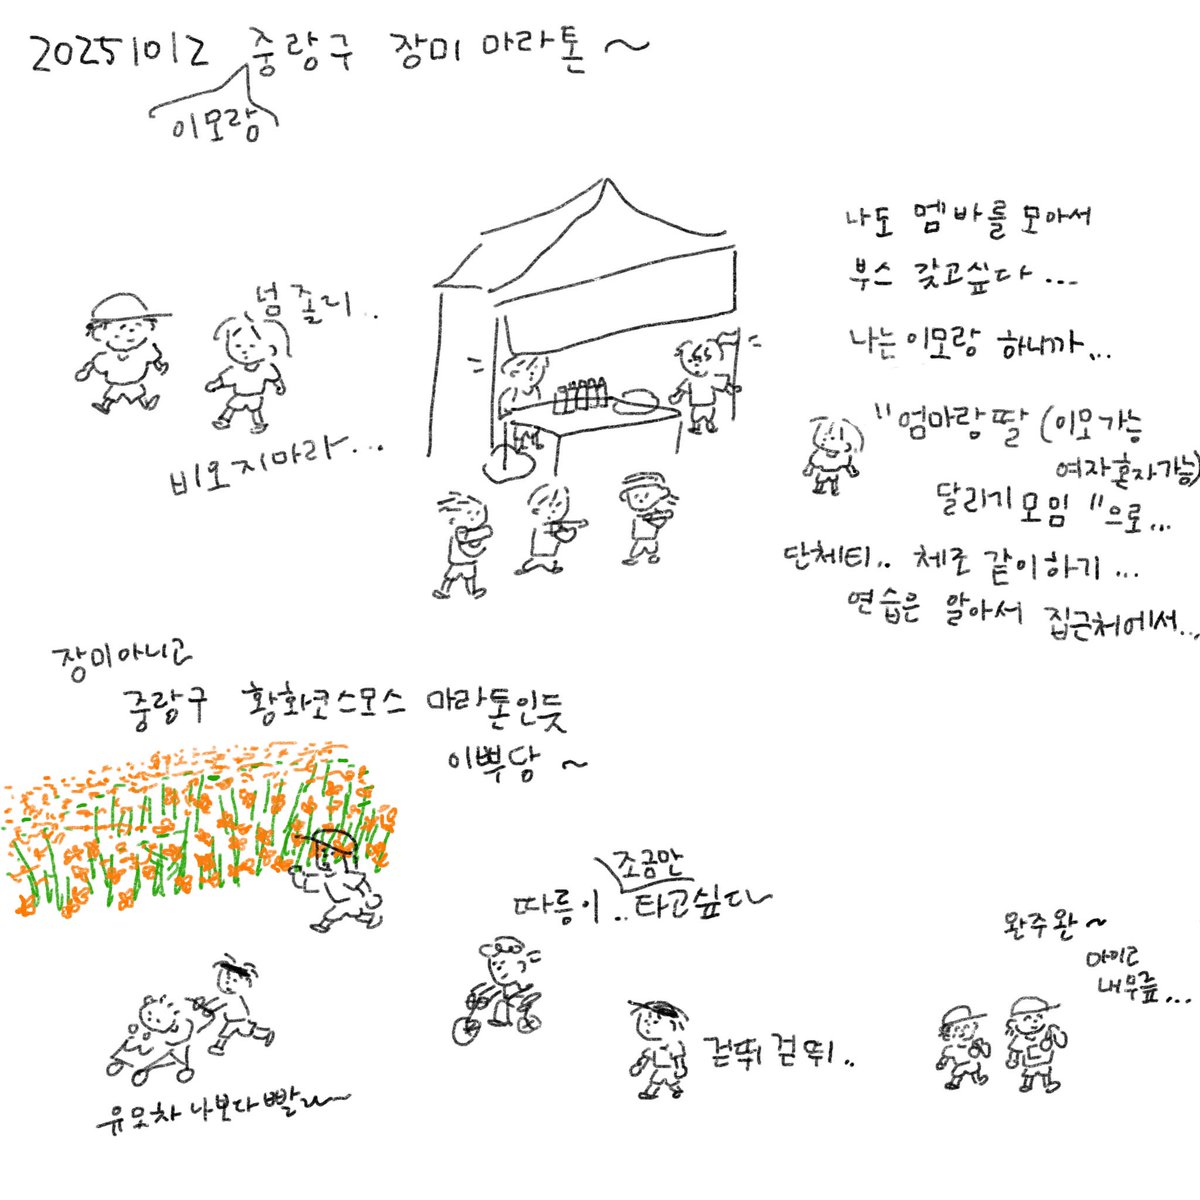 20251012 중랑구 장미 마라톤~
이모랑
넘졸리..
비오지마라...
나도 멤바를 모아서
부스 갖고싶다...
나는 이모랑 하니까...
"엄마랑 딸 (이모가능
여자혼자가능)
달리기 모임"으로...
단체티.. 체조 같이하기...
연습은 알아서 집근처에서...
장미아니고
중랑구 황화코스모스 마라톤인듯
이뿌당~
조금만
따릉이..타고싶다~
유모차 나보다 빨라~
걷뛰걷뛰..
완주완~
아이고
내무릎...